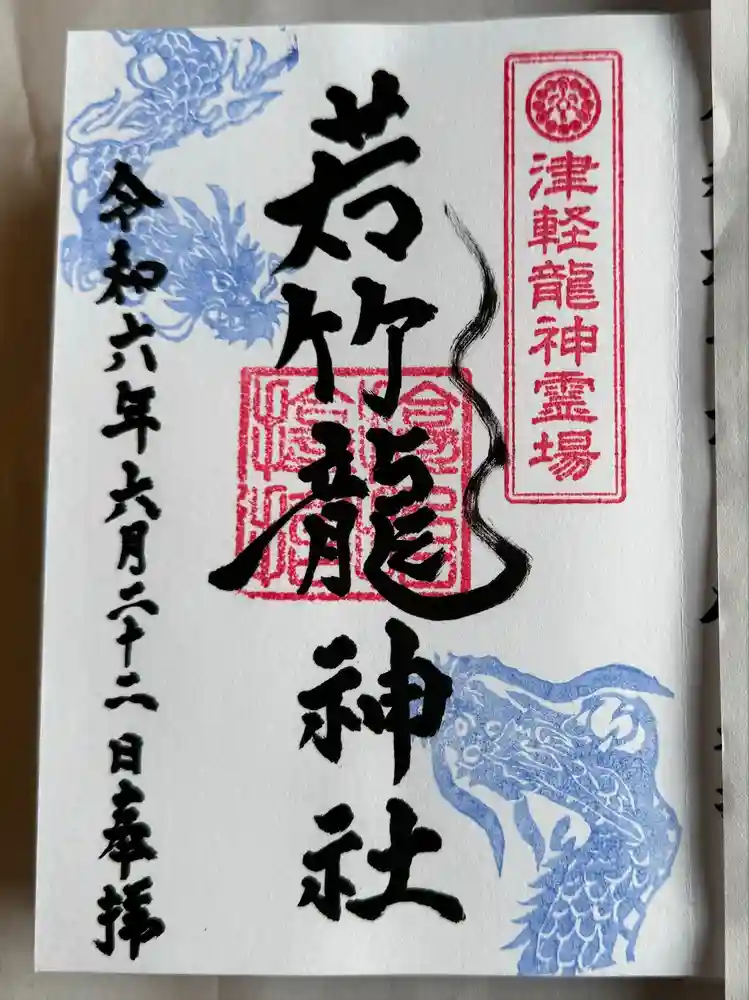 津軽龍神霊場
若竹龍神社
令和六年六月二十二日奉拝